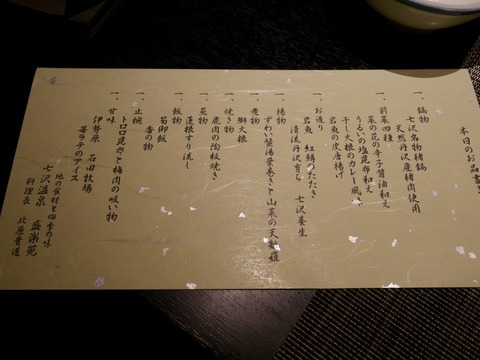 本日のお品書き
一、鍋物
七沢名物猪鍋
天然丹沢産猪肉使用
一、前菜四種
菜の花の辛子醤油和え
うるいの塩昆布和え
干し大根のカレー風味
岩魚の皮唐揚げ
一、お造り
岩魚 紅鱒のたたき
清流丹沢育ち 七沢養生
一、揚物
ずわい蟹湯葉巻きと山菜の天婦羅
一、煮物
鰤大根
一、焼き物
鹿肉の陶板焼き
一、蒸物
蓮根すり流し
一、飯物
筍御飯
香の物
一、止椀
トロロ昆布と梅肉の吸い物
一、甘味
伊勢原 石田牧場
苺ラテのアイス
地の食材と四季の味
七沢温泉 盛楽苑
料理長 北原貴道